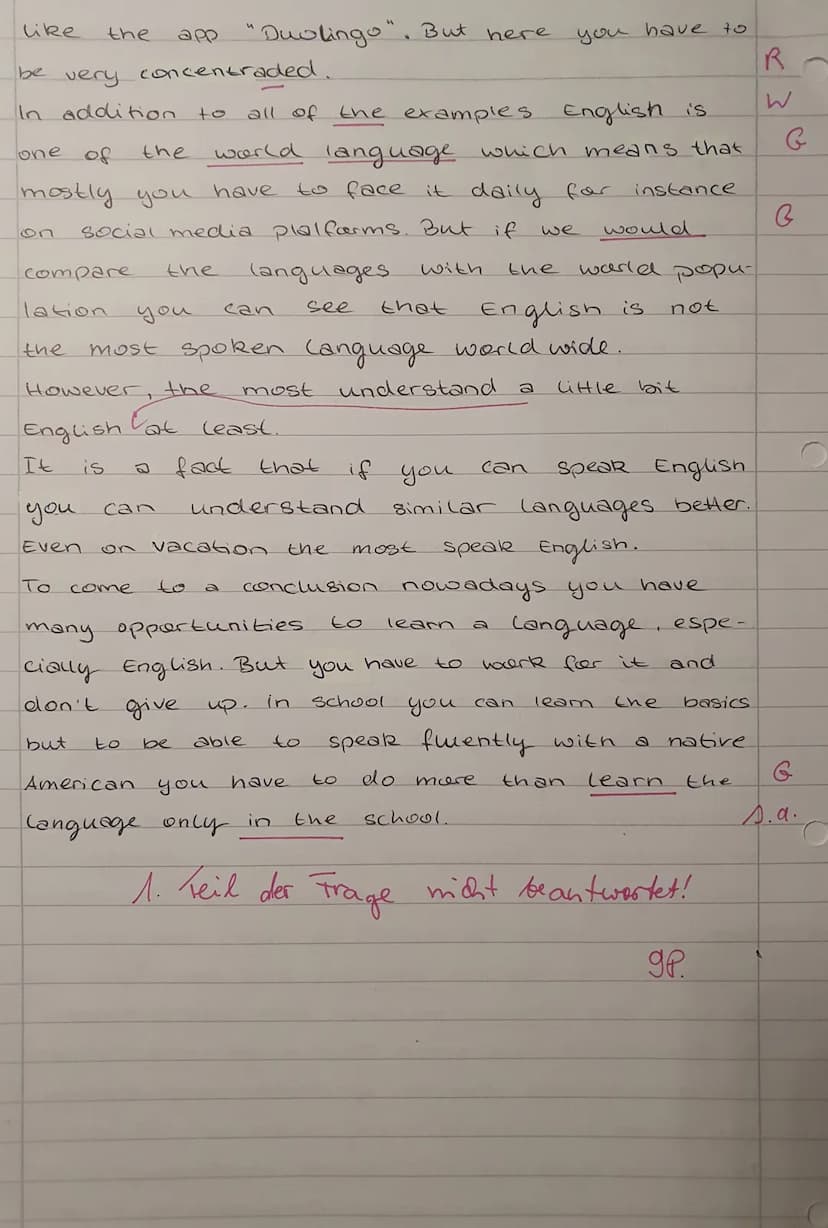 like the app "Duolingo". But here you have to
be very concentraded. R
In addition to all of the examples English is W
one of the world language which means that G
mostly you have to face it daily for instance
on social media platforms. But if we would G
compare the languages with the world popu-
lation you can see that English is not
the most spoken language world wide.
However, the most understand a little bit
English at least.
It is a fact that if you can speak English
you can understand similar languages better.
Even on vacation the most speak English.
To come to a conclusion nowadays you have
many opportunities to learn a language, espe-
cially English. But you have to work for it and
don't give up. in school you can learn the basics
but to be able to speak fluently with a native
American you have to do more than learn the G
language only in the school. s.a.
1. Teil der Frage nicht beantwortet!
9P.